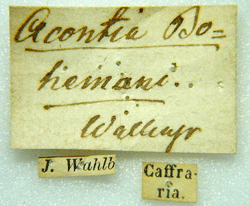 Acontia Bo=
hemani..
Wallengr
J. Wahlb
Caffra-
ria.